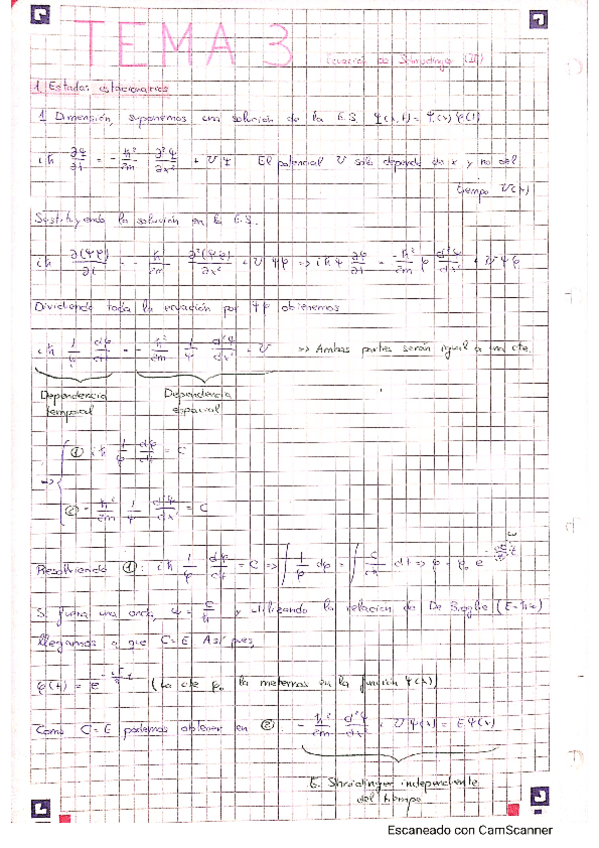 TEMA 3
Ecuación de Schrödinger (II)
1. Estados estacionarios
1 Dimensión, suponemos una solución de la E.S. Ψ(x,t) = ψ(x) φ(t)
iħ ∂Ψ/∂t = - ħ²/2m ∂²Ψ/∂x² + UΨ El potencial U solo depende de x y no del
tiempo U(x)
Sustituyendo la solución en la E.S.
iħ ∂(ψφ)/∂t = - ħ²/2m ∂²(ψφ)/∂x² + Uψφ => iħψ ∂φ/∂t = -ħ²/2m φ d²ψ/dx² + Uψφ
Dividiendo toda la ecuación por ψφ obtenemos
iħ 1/φ dφ/dt = - ħ²/2m 1/ψ d²ψ/dx² + U => Ambas partes serán igual a una cte
Dependencia temporal
Dependencia espacial
① iħ 1/φ dφ/dt = C
② - ħ²/2m 1/ψ d²ψ/dx² = C
Resolviendo ①: iħ 1/φ dφ/dt = C => ∫ 1/φ dφ = ∫ C/iħ dt => φ = φ₀ e
Si fuera una onda, ω = C/ħ y utilizando la relación de De Broglie (E=ħω)
llegamos a que C=E Así pues,
φ(t) = e (La cte φ₀ la metemos en la función ψ(x))
Como C=E podemos obtener en ②: - ħ²/2m d²ψ/dx² + Uψ(x) = Eψ(x)
E. Shrödinger independiente
del tiempo
Escaneado con CamScanner